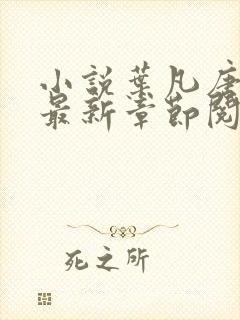 小說葉凡唐
最新章節閱
死之所